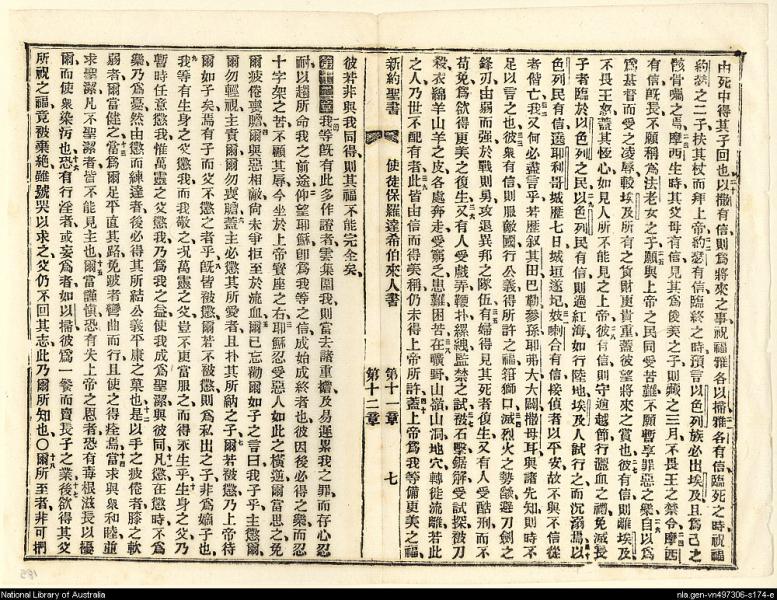 由死中得其子回也以撒有信則爲將來之事祝福雅各以掃雅各有信臨死之時祝福
約瑟之二子扶其杖而拜上帝約瑟有信臨終之時預言以色列族必出埃及且爲己之
骸骨囑之焉摩西生時其父母有信見其爲俊美之子則藏之三月不畏王之禁令摩西
有信旣長不願稱爲法老女之子願與上帝之民同受苦難不願暫享罪惡之樂自以爲
爲基督而受之凌辱較埃及所有之貨財更貴重蓋彼望將來之賞也彼有信則離埃及
不畏王怒蓋其恆心如見人所不能見之上帝彼有信則守逾越節行灑血之禮免滅長
子者臨於以色列之民以色列民有信則過紅海如行陸地埃及人試行之而沉溺焉以
色列民有信遶耶利哥城歷七日城垣遂圮妓喇合有信接偵者以平安故不與不信從
者偕亡我又何必盡言乎若歷叙其田巴勒參孫耶弗大大闢撒母耳與諸先知則時不
足以言之也彼衆有信則服敵國行公義得所許之福箝獅口滅烈火之勢避刀劍之
鋒刃由弱而強於戰則勇攻退異邦之隊伍有婦得見其死者復生又有人受酷刑而不
苟免爲欲得更美之復生又有人受戲弄鞭扑縲絏監禁之試被石擊鋸解受試探被刀
殺衣綿羊山羊之皮各處奔走受窮乏患難困苦在曠野山嶺山洞地穴轉徙流離若此
之人乃世不配有者此皆由信而得美稱仍未得上帝所許蓋上帝爲我等備更美之福
新約聖書 使徒保羅達希伯來人書 第十一章 第十二章 七
彼若非與我同得則其福不能完全矣
我等旣有此多作證者雲集圍我則當去諸重擔及易遲累我之罪而存心忍
耐以趨所命我之前途仰望耶穌卽爲我等之信成始成終者也彼因後必得之樂而忍
十字架之苦不顧其辱今坐於上帝寶座之右耶穌忍受惡人如此之橫逆爾當思之免
爾疲倦喪膽爾與惡相敵尙未爭拒至於流血爾已忘勸爾如子之言曰我子乎主懲爾
爾勿輕視主責爾爾勿喪膽蓋主必懲其所愛者且扑其所納之子爾若被懲乃上帝待
爾如子矣焉有子而父不懲之者乎旣皆被懲爾若不被懲則爲私出之子非爲嫡子也
我等有生身之父懲我而我敬之况萬靈之父豈不更當服之而得永生乎生身之父乃
暫時任意懲我惟萬靈之父懲我乃爲我之益使我成爲聖潔與彼同凡懲在懲時不爲
樂乃爲憂然由懲而練達者後必得其所結公義平康之菓也是以手之疲倦者膝之軟
弱者爾當健之當爲爾足平直其路免跛者彎曲而行且使之得痊焉當求與衆和睦並
求聖潔凡不聖潔者皆不能見主也爾當謹愼恐有失上帝之恩者恐有毒根滋長以擾
爾而使衆染污也恐有行淫者或妄爲者如以掃彼爲一餐而賣長子之業後欲得其父
所祝之福竟被棄絕雖號哭以求之父仍不回其志此乃爾所知也〇爾所至者非可捫
National Library of Australia
nla.gen-vn497306-s174-e